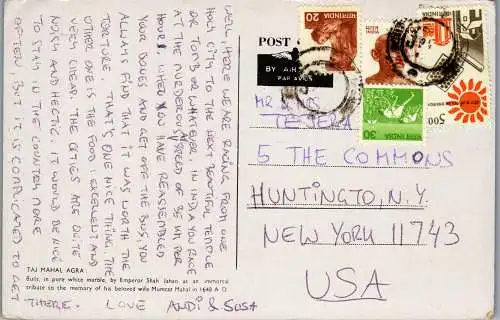 WELL, HERE WE ARE RACING FROM ONE
HOLY CITY TO THE NEXT BEAUTIFUL TEMPLE
OR TOMB OR WHATEVER. IN INDIA YOU RACE
AT THE MURDEROUS SPEED OF 35 MI PER
HOUR. WHEN YOU HAVE REASSEMBLED
YOUR BONES AND GET OFF THE BUS, YOU
ALWAYS FIND THAT IT WAS WORTH THE
TORTURE. THAT'S ONE NICE THING, THE
OTHER ONE IS THE FOOD: EXCELLENT AND
VERY CHEAP. THE CITIES ARE QUITE
NOISY AND HECTIC. IT WOULD BE NICE
TO STAY IN THE COUNTRY MORE
OFTEN, BUT IT IS COMPLICATED TO GET
THERE. LOVE ANDI & SUSA
TAJ MAHAL AGRA
Built, in pure white marble, by Emperor Shah Jahan as an immortal
tribute to the memory of his beloved wife Mumtaz Mahal in 1648 A D
POST
BY AIR
PAR AVION
20
भारत INDIA
भारत INDIA
30
भारत INDIA
500
MR
TEFERA
5 THE COMMONS
HUNTINGTON, N.Y.
NEW YORK 11743
USA